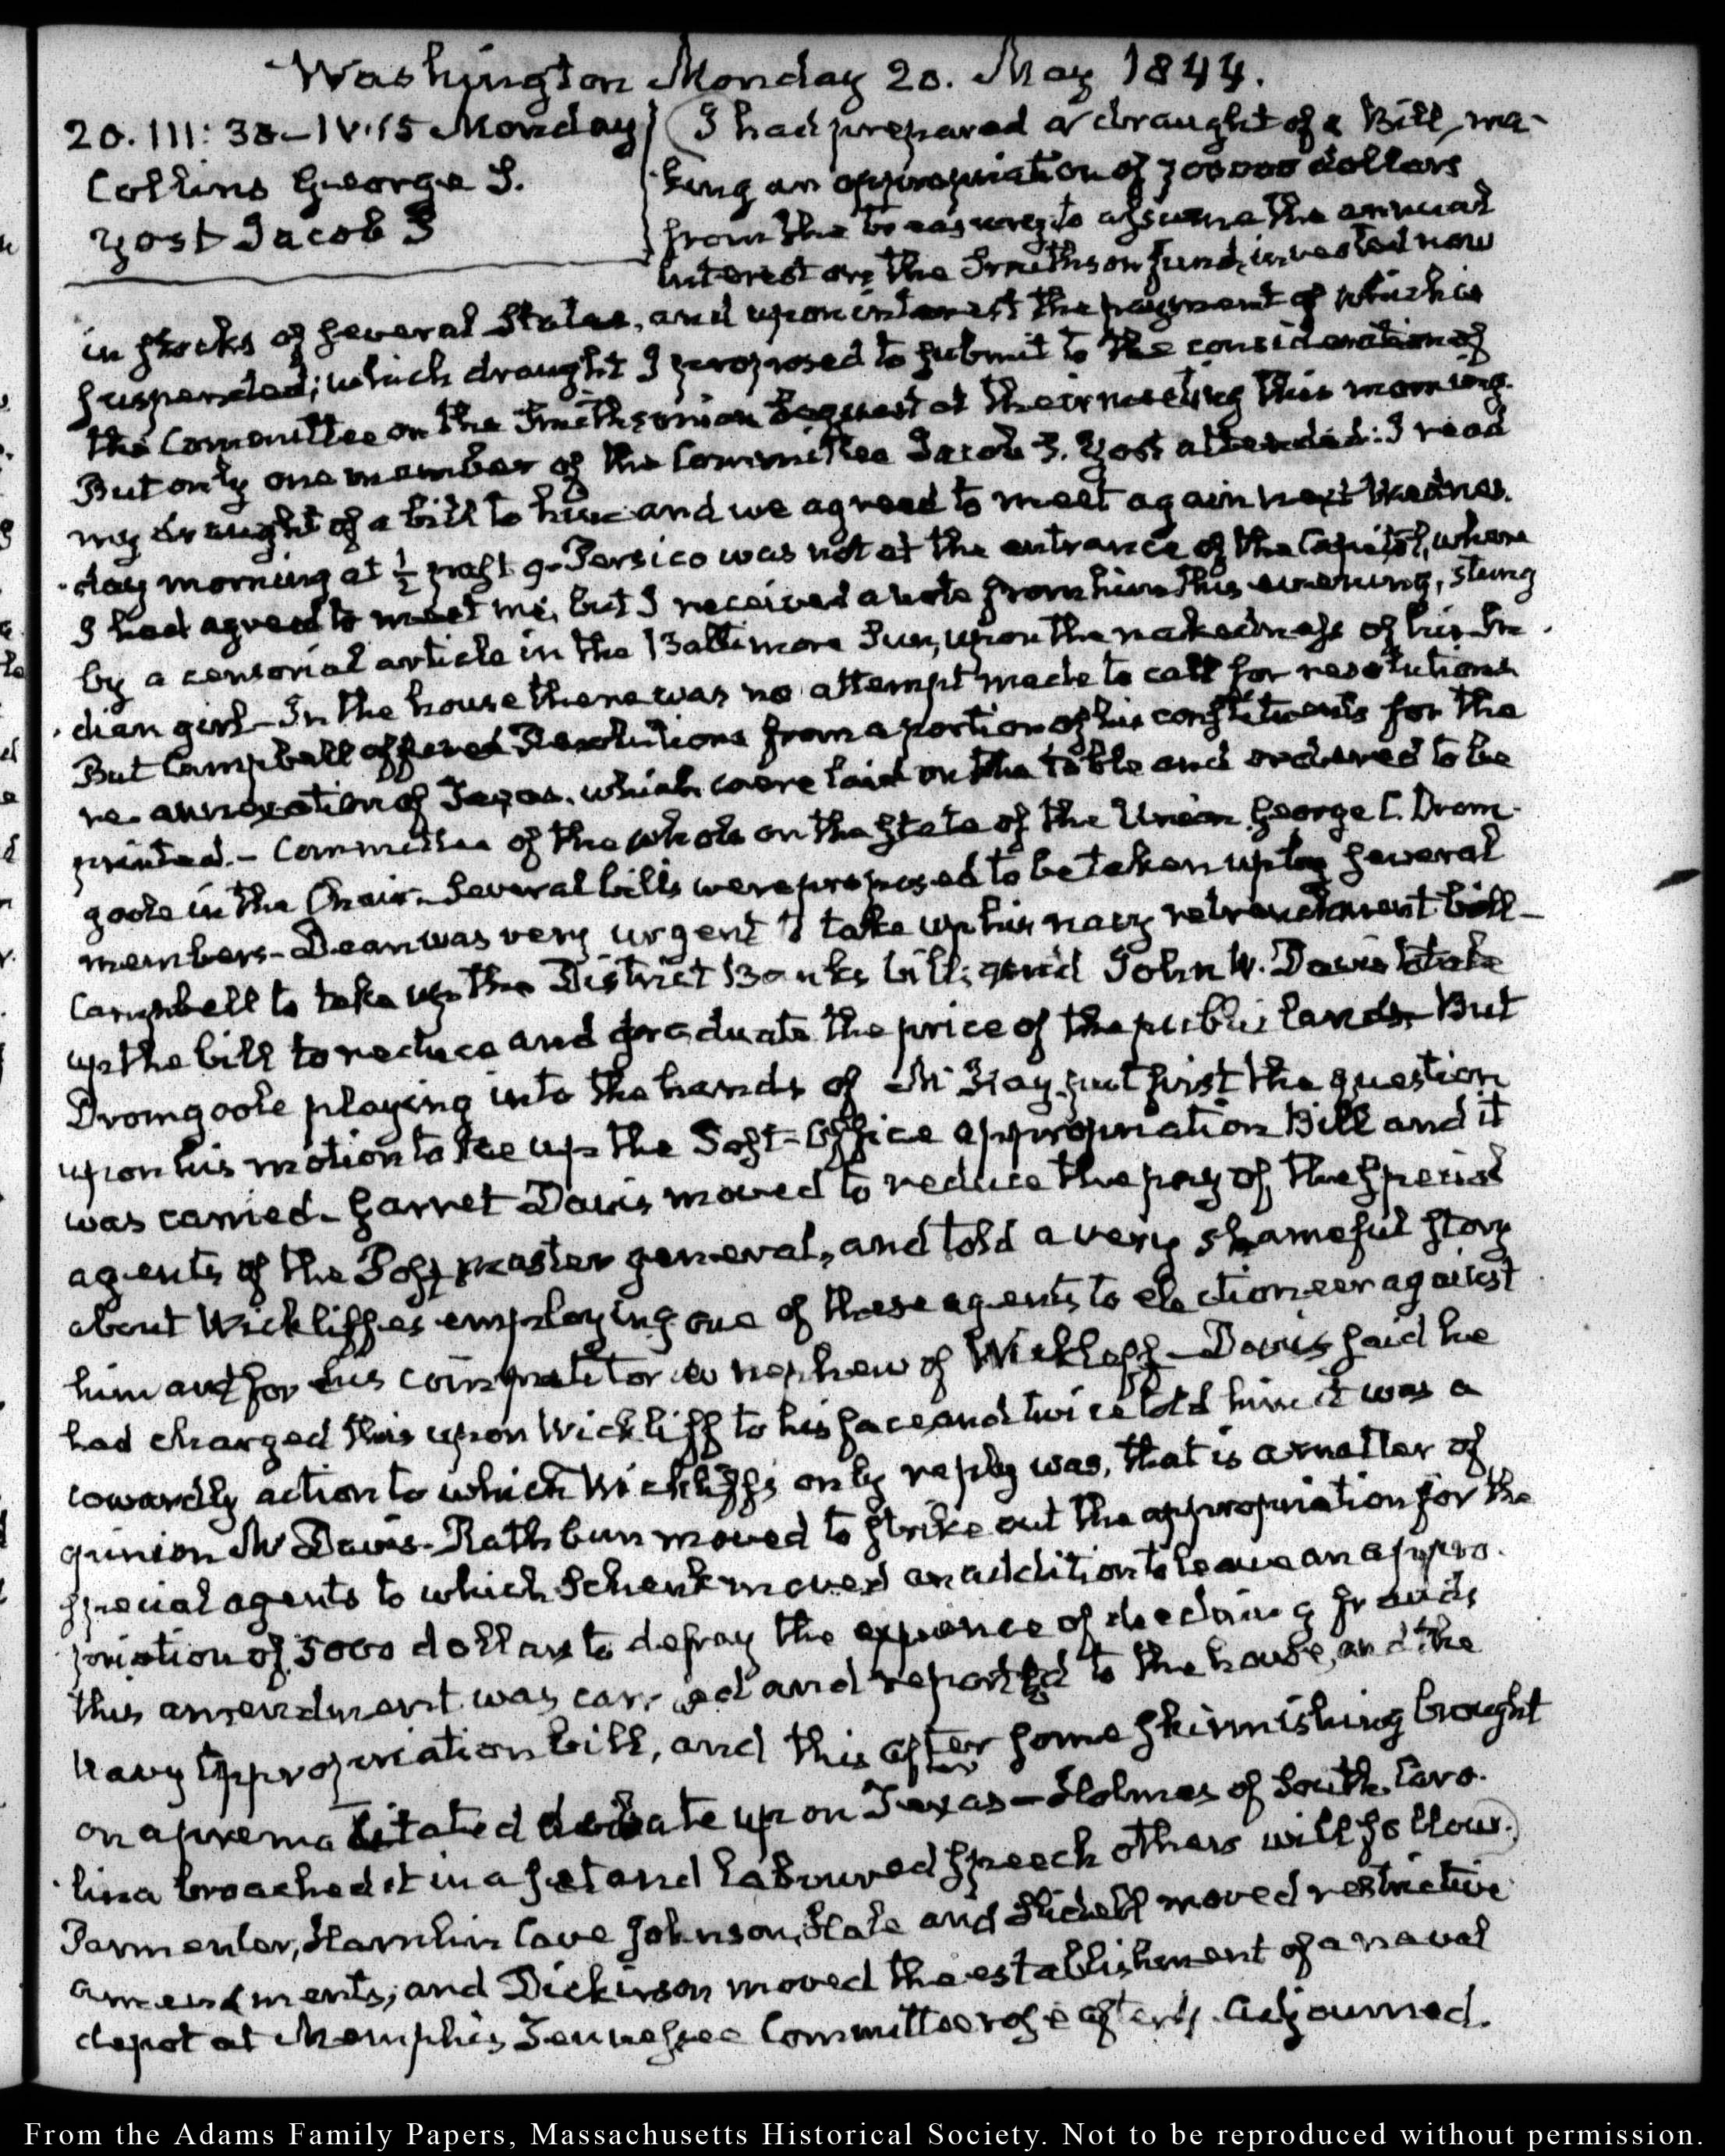 Washington Monday 20. May 1844.
20. III: 30 — IV.15 Monday
Collins George S.
Yost Jacob S
I had prepared a draught of a Bill, ma-
king an appropriation of 700000 dollars
from the treasury, to assume the annual
interest on the Smithson fund, invested now
in stocks of several States, and upon interest the payment of which is
suspended; which draught I proposed to submit to the consideration of
the Committee on the Smithsonian bequest at their meeting this morning.
But only one member of the Committee Jacob S. Yost attended: I read
my draught of a bill to him and we agreed to meet again next Wednes-
day morning at ½ past 9 - Persico was not at the entrance of the Capitol, where
I had agreed to meet me, but I received a note from him this evening, stung
by a censorial article in the Baltimore Sun, upon the nakedness of his In-
dian girl - In the house there was no attempt made to call for resolutions
But Campbell offered Resolutions from a portion of his constituents for the
re-annexation of Texas, which were laid on the table and ordered to be
printed. - Committee of the whole on the State of the Union George C. Drom-
goole in the Chair - Several bills were proposed to be taken up by several
members - Dean was very urgent to take up his navy retrenchment bill -
Campbell to take up the District Banks bill; and John W. Davis to take
up the bill to reduce and graduate the price of the public lands - But
Dromgoole playing into the hands of McKay, put first the question
upon his motion to take up the Post-Office appropriation Bill and it
was carried - Garret Davis moved to reduce the pay of the special
agents of the Postmaster general, and told a very shameful story
about Wickliffe's employing one of these agents to electioneer against
him and for his competitor a nephew of Wickliff - Davis said he
had charged this upon Wickliff to his face and twice told him it was a
cowardly action to which Wickliff's only reply was, that is a matter of
opinion Mr Davis - Rathbun moved to strike out the appropriation for the
special agents to which Schenk moved an addition to leave an appro-
priation of 5000 dollars to defray the expence of detecting frauds
this amendment was carried and reported to the house, and the
navy appropriation bill, and this after some skirmishing brought
on a premeditated debate upon Texas - Holmes of South Caro-
lina broached it in a set and laboured speech others will follow.
Parmenter, Hamlin Cave Johnson, Hale and Slidell moved restrictive
amendments; and Dickinson moved the establishment of a naval
depot at Memphis Tennessee Committee rose after 4. Adjourned.
From the Adams Family Papers, Massachusetts Historical Society. Not to be reproduced without permission.